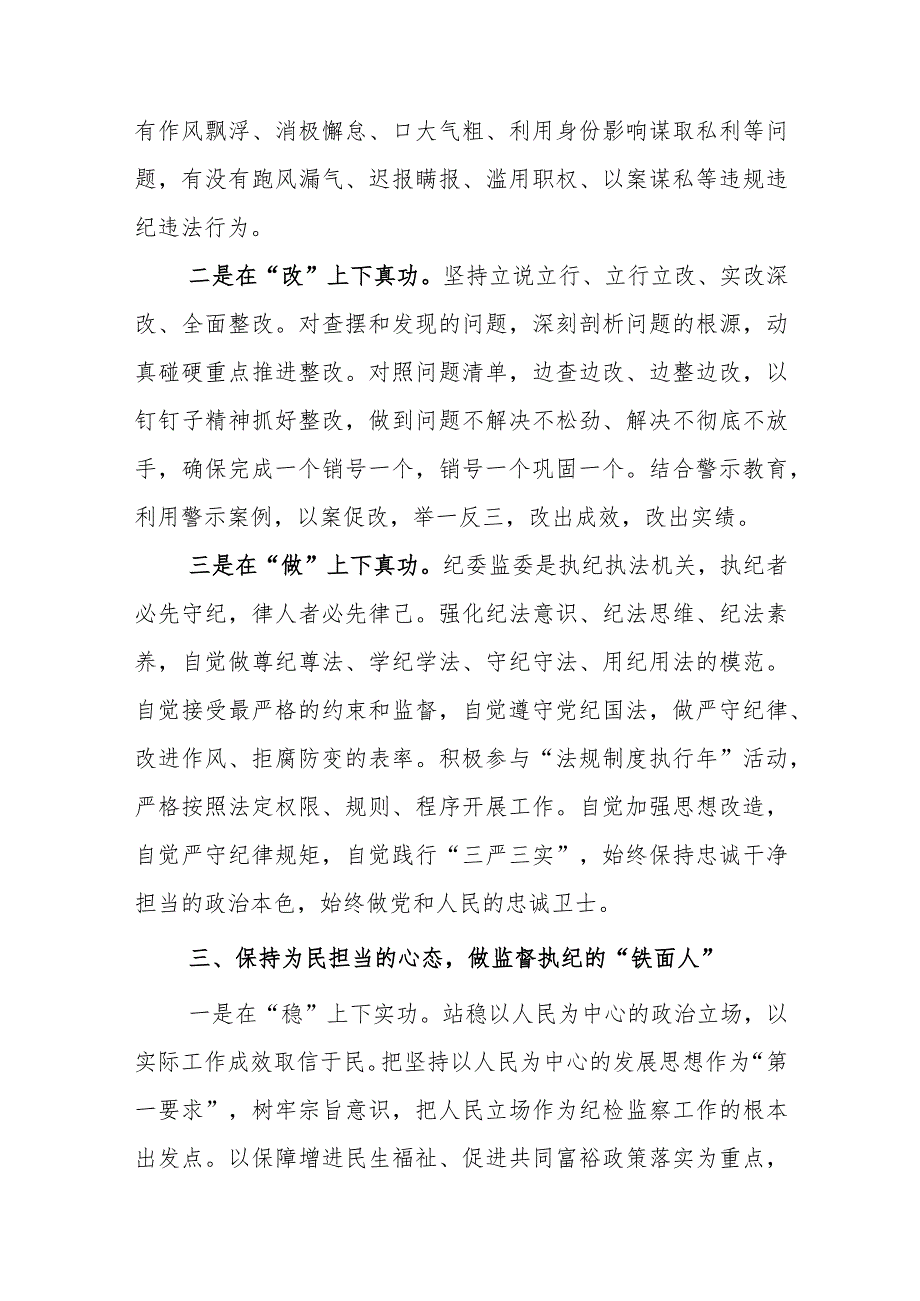 有作风飘浮、消极懈怠、口大气粗、利用身份影响谋取私利等问
题，有没有跑风漏气、迟报瞒报、滥用职权、以案谋私等违规违
纪违法行为。
二是在“改”上下真功。坚持立说立行、立行立改、实改深
改、全面整改。对查摆和发现的问题，深刻剖析问题的根源，动
真碰硬重点推进整改。对照问题清单，边查边改、边整边改，以
钉钉子精神抓好整改，做到问题不解决不松劲、解决不彻底不放
手，确保完成一个销号一个，销号一个巩固一个。结合警示教育，
利用警示案例，以案促改，举一反三，改出成效，改出实绩。
三是在“做”上下真功。纪委监委是执纪执法机关，执纪者
必先守纪，律人者必先律己。强化纪法意识、纪法思维、纪法素
养，自觉做尊纪尊法、学纪学法、守纪守法、用纪用法的模范。
自觉接受最严格的约束和监督，自觉遵守党纪国法，做严守纪律、
改进作风、拒腐防变的表率。积极参与“法规制度执行年”活动，
严格按照法定权限、规则、程序开展工作。自觉加强思想改造，
自觉严守纪律规矩，自觉践行“三严三实”，始终保持忠诚干净
担当的政治本色，始终做党和人民的忠诚卫士。
三、保持为民担当的心态，做监督执纪的“铁面人”
一是在“稳”上下实功。站稳以人民为中心的政治立场，以
实际工作成效取信于民。把坚持以人民为中心的发展思想作为“第
一要求”，树牢宗旨意识，把人民立场作为纪检监察工作的根本
出发点。以保障增进民生福祉、促进共同富裕政策落实为重点，